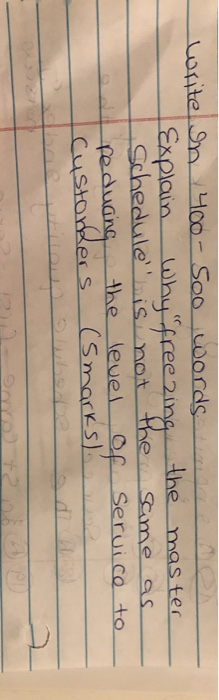 Write in 400-500 words
Explain why "freezing the master
Schedule" is not the same as
reducing the level of service to
Customers (5marks).